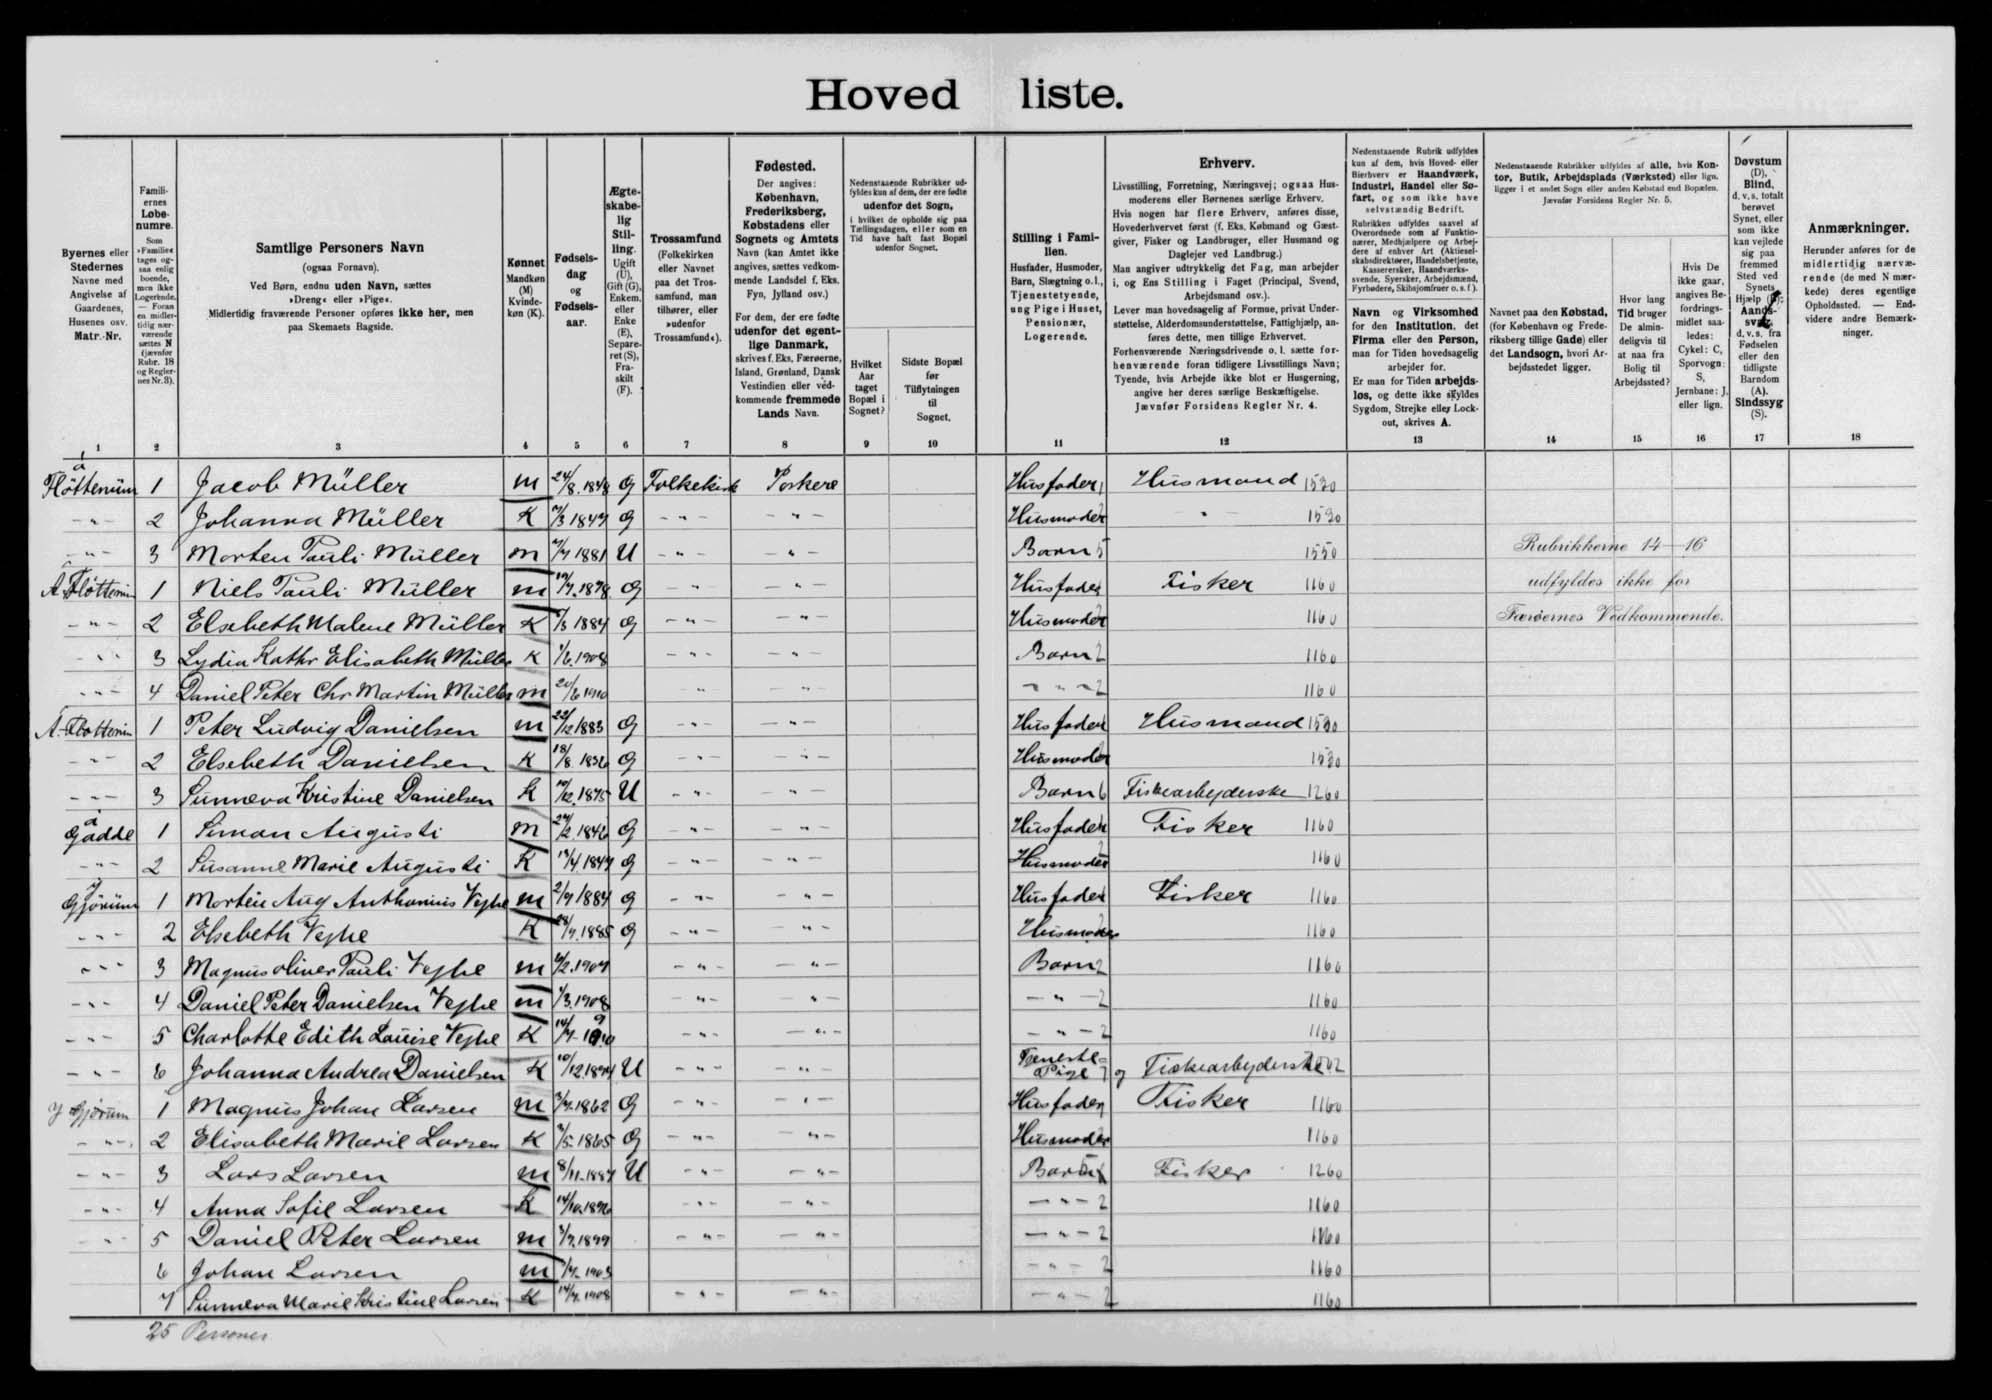 Hovedliste.
Byernes eller Stedernes Navne med Angivelse af Gaardenes, Husenes osv. Matr.-Nr.
Familiernes Løbenumre. Som »Familie« tages ogsaa enlig boende, men ikke Logerende. — Foran en midlertidig nærværende sættes N (jævnfør Rubr. 18 og Reglernes Nr. 3).
Samtlige Personers Navn (ogsaa Fornavn). Ved Børn, endnu uden Navn, sættes »Dreng« eller »Pige«. Midlertidig fraværende Personer opføres ikke her, men paa Skemaets Bagside.
Kønnet Mandkøn (M) Kvindekøn (K).
Fødselsdag og Fødselsaar.
Ægteskabelig Stilling. Ugift (U), Gift (G), Enkem. eller Enke (E), Separeret (S), Fraskilt (F).
Trossamfund (Folkekirken eller Navnet paa det Trossamfund, man tilhører, eller »udenfor Trossamfund«).
Fødested. Der angives: København, Frederiksberg, Købstadens eller Sognets og Amtets Navn (kan Amtet ikke angives, sættes vedkommende Landsdel f. Eks. Fyn, Jylland osv.) For dem, der ere fødte udenfor det egentlige Danmark, skrives f. Eks. Færøerne, Island, Grønland, Dansk Vestindien eller vedkommende fremmede Lands Navn.
Nedenstaaende Rubrikker udfyldes kun af dem, der ere fødte udenfor det Sogn, i hvilket de opholde sig paa Tællingsdagen, eller som en Tid have haft fast Bopæl udenfor Sognet.
Hvilket Aar taget Bopæl i Sognet?
Sidste Bopæl før Tilflytningen til Sognet.
Stilling i Familien. Husfader, Husmoder, Barn, Slægtning o. l., Tjenestetyende, ung Pige i Huset, Pensionær, Logerende.
Erhverv. Livsstilling, Forretning, Næringsvej; ogsaa Husmoderens eller Børnenes særlige Erhverv. Hvis nogen har flere Erhverv, anføres disse, Hovederhvervet først (f. Eks. Købmand og Gæstgiver, Fisker og Landbruger, eller Husmand og Daglejer ved Landbrug.) Man angiver udtrykkelig det Fag, man arbejder i, og Ens Stilling i Faget (Principal, Svend, Arbejdsmand osv.). Lever man hovedsagelig af Formue, privat Understøttelse, Alderdomsunderstøttelse, Fattighjælp, anføres dette, men tillige Erhvervet. Forhenværende Næringsdrivende o. l. sætte forhenværende foran tidligere Livsstillings Navn; Tyende, hvis Arbejde ikke blot er Husgerning, angive her deres særlige Beskæftigelse. Jævnfør Forsidens Regler Nr. 4.
Nedenstaaende Rubrik udfyldes kun af dem, hvis Hoved- eller Bierhverv er Haandværk, Industri, Handel eller Søfart, og som ikke have selvstændig Bedrift. Rubrikken udfyldes saavel af Overordnede som af Funktionærer, Medhjælpere og Arbejdere af enhver Art (Aktieselskabsdirektører, Handelsbetjente, Kasserersker, Haandværkssvende, Syersker, Arbejdsmænd, Fyrbødere, Skibsjomfruer o. s. f.).
Navn og Virksomhed for den Institution, det Firma eller den Person, man for Tiden hovedsagelig arbejder for. Er man for Tiden arbejdsløs, og dette ikke skyldes Sygdom, Strejke eller Lockout, skrives A.
Nedenstaaende Rubrikker udfyldes af alle, hvis Kontor, Butik, Arbejdsplads (Værksted) eller lign. ligger i et andet Sogn eller anden Købstad end Bopælen. Jævnfør Forsidens Regler Nr. 5.
Navnet paa den Købstad, (for København og Frederiksberg tillige Gade) eller det Landsogn, hvori Arbejdsstedet ligger.
Hvor lang Tid bruger De almindeligvis til at naa fra Bolig til Arbejdssted?
Hvis De ikke gaar, angives Befordringsmidlet saaledes: Cykel: C, Sporvogn: S, Jernbane: J, eller lign.
Døvstum (D), Blind, d. v. s. totalt berøvet Synet, eller som ikke kan vejlede sig paa fremmed Sted ved Synets Hjælp (B); Aandssvag, d. v. s. fra Fødselen eller den tidligste Barndom (A). Sindssyg (S).
Anmærkninger. Herunder anføres for de midlertidig nærværende (de med N mærkede) deres egentlige Opholdssted. — Endvidere andre Bemærkninger.
1 2 3 4 5 6 7 8 9 10 11 12 13 14 15 16 17 18
á Fløttenum 1 Jacob Müller M 24/8.1848 G Folkekirk Porkere Husfader 1 Husmand 1530
-"- 2 Johanna Müller K 1847 G -"- -"- Husmoder -"- 1530
-"- 3 Morten Pauli Müller M 1881 U -"- -"- Barn 5 1550 Rubrikkerne 14-16
A. Fløttenum 1 Niels Pauli Müller M 1878 G -"- -"- Husfader Fisker 1160 udfyldes ikke for
-"- 2 Elsebeth Malene Müller K 1884 G -"- -"- Husmoder 1160 Færøernes Vedkommende.
-"- 3 Lydia Kathr Elisabeth Müller K 1/6.1908 -"- -"- Barn 2 1160
-"- 4 Daniel Peter Chr Martin Müller M 1910 -"- -"- -"- 2 1160
A. Fløttenum 1 Peter Ludvig Danielsen M 22/12 1883 G -"- -"- Husfader Husmand 1530
-"- 2 Elsebeth Danielsen K 18/8.1836 G -"- -"- Husmoder 1530
-"- 3 Sunneva Kristine Danielsen K 10/12.1875 U -"- -"- Barn 6 Fiskearbejderske 1260
á Gadde 1 Simon Augusti M 24/2 1846 G -"- -"- Husfader Fisker 1160
-"- 2 Susanne Marie Augusti K 1847 G -"- -"- Husmoder 1160
y Gjørum 1 Morten Aug Anthonius Vejhe M 2/7 1884 G -"- -"- Husfader Fisker 1160
-"- 2 Elsebeth Vejhe K 1885 G -"- -"- Husmoder 1160
-"- 3 Magnus Oliver Pauli Vejhe M 1907 -"- -"- Barn 2 1160
-"- 4 Daniel Peter Danielsen Vejhe M 1/3.1908 -"- -"- -"- 2 1160
-"- 5 Charlotte Edith Louise Vejhe K 1910 -"- -"- -"- 2 1160
-"- 6 Johanna Andrea Danielsen K 10/12.1894 U -"- -"- Tjeneste-Pige 7 og Fiskearbejderske
y Gjørum 1 Magnus Johan Larsen M 1862 G -"- -"- Husfader Fisker 1160
-"- 2 Elisabeth Marie Larsen K 1865 G -"- -"- Husmoder 1160
-"- 3 Lars Larsen M 8/11.1887 U -"- -"- Barn Fisker 1260
-"- 4 Anna Sofie Larsen K 14/10.1896 -"- -"- -"- 2 1160
-"- 5 Daniel Peter Larsen M 1899 -"- -"- -"- 2 1160
6 Johan Larsen M 1903 -"- 2 1160
7 Sunneva Marie Kristine Larsen K 1908 -"- -"- -"- 2 1160
25 Personer